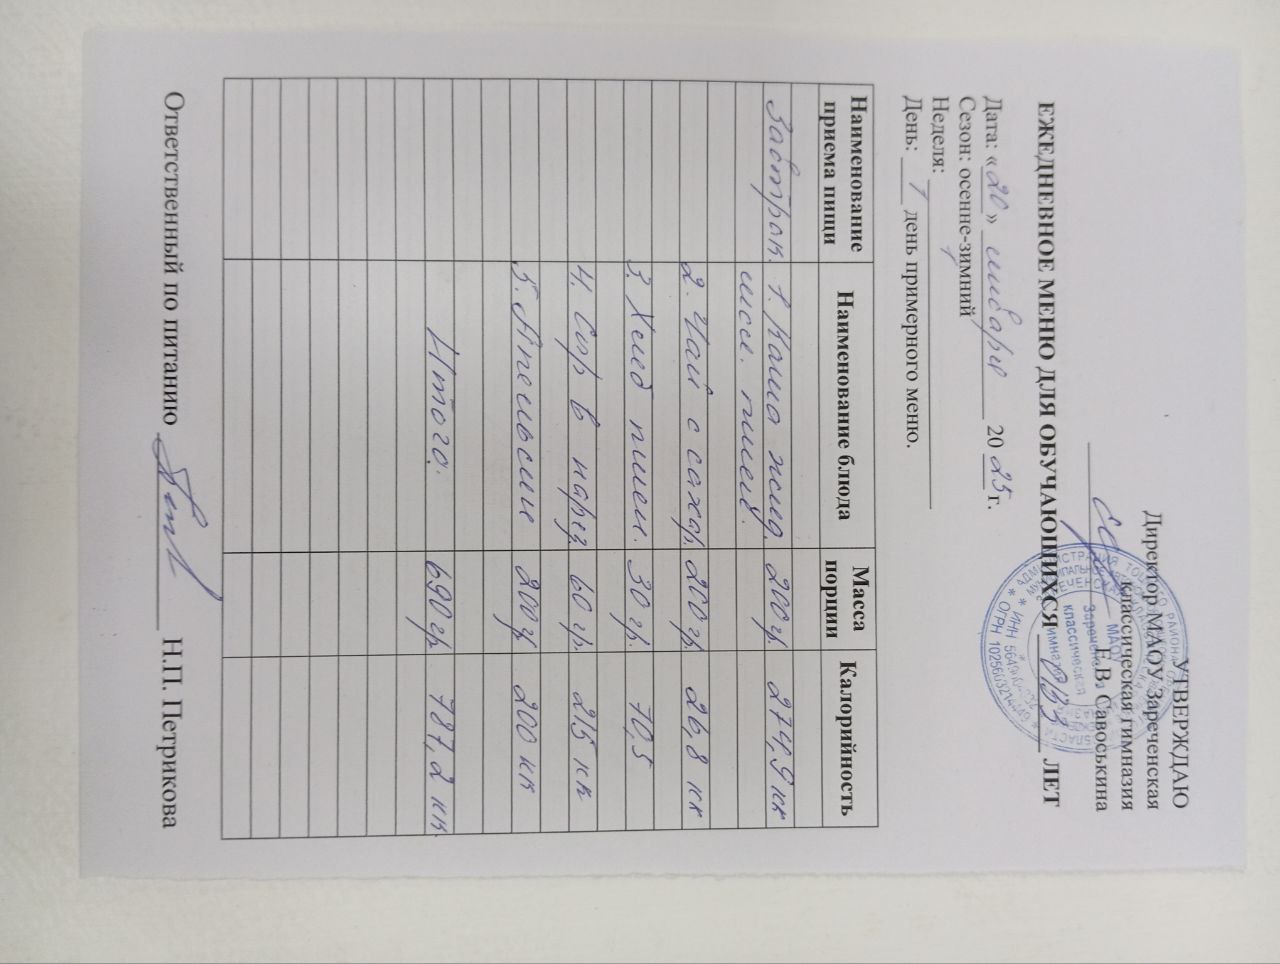 УТВЕРЖДАЮ
Директор МАОУ Зареченская
классическая гимназия
Е.В. Савоськина
ЕЖЕДНЕВНОЕ МЕНЮ ДЛЯ ОБУЧАЮЩИХСЯ ОВЗ ЛЕТ
Дата: «20» января 2025 г.
Сезон: осенне-зимний
Неделя: 1
День: 1 день примерного меню.
Наименование приема пищи Наименование блюда Масса порции Калорийность
Завтрак. 1. Каша жид. 200 гр. 274,9 кк
пшен.
2. Чай с сахар. 200 гр. 26,8 кк
3. Хлеб пшен. 30 гр. 70,5
4. Сыр в нарез. 60 гр. 215 кк
5. Апельсин 200 гр 200 кк
Итого. 690 гр 787,2 кк.
Ответственный по питанию Н.П. Петрикова